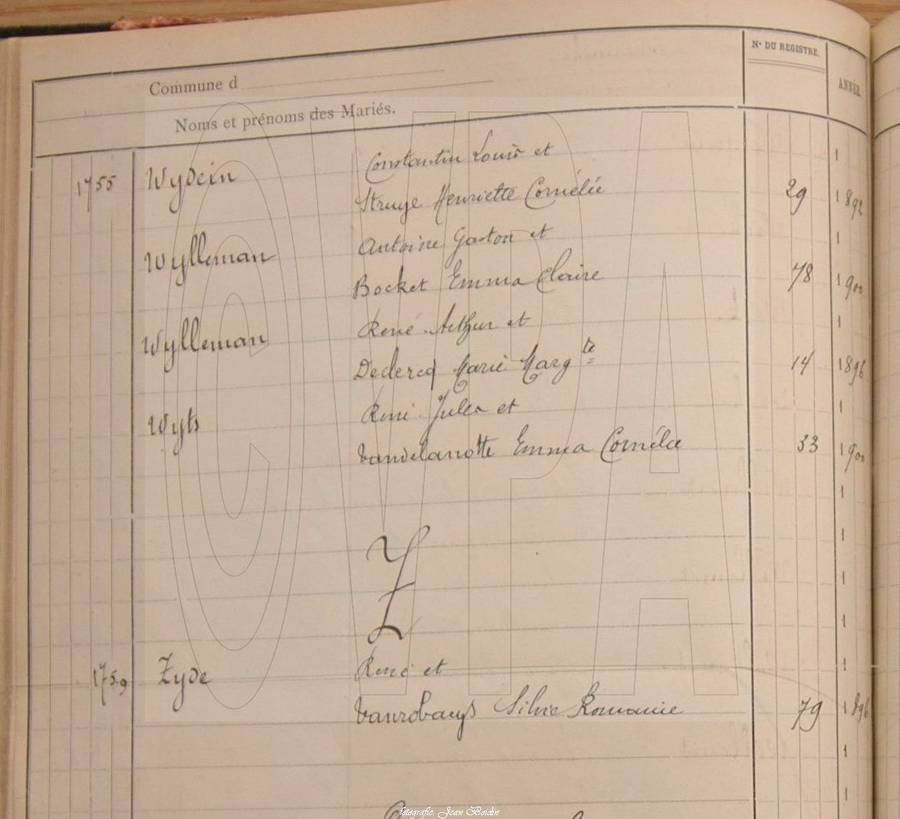 Commune d
Nº DU REGISTRE.
ANNÉE.
Noms et prénoms des Mariés.
1755 Wydein Constantin Louis et
Struye Henriette Cornélie 29 1892
Wylleman Antoine Gaston et
Bocket Emma Claire 78 1900
Wylleman René Arthur et
Declercq Marie Margte 14 1896
Wyts René Jules et
Vandelanotte Emma Cornélie 33 1900
Z
1759 Zyde René et
Silvie Romanie 79 1896
CVPA
fotografie: Jean Boidin